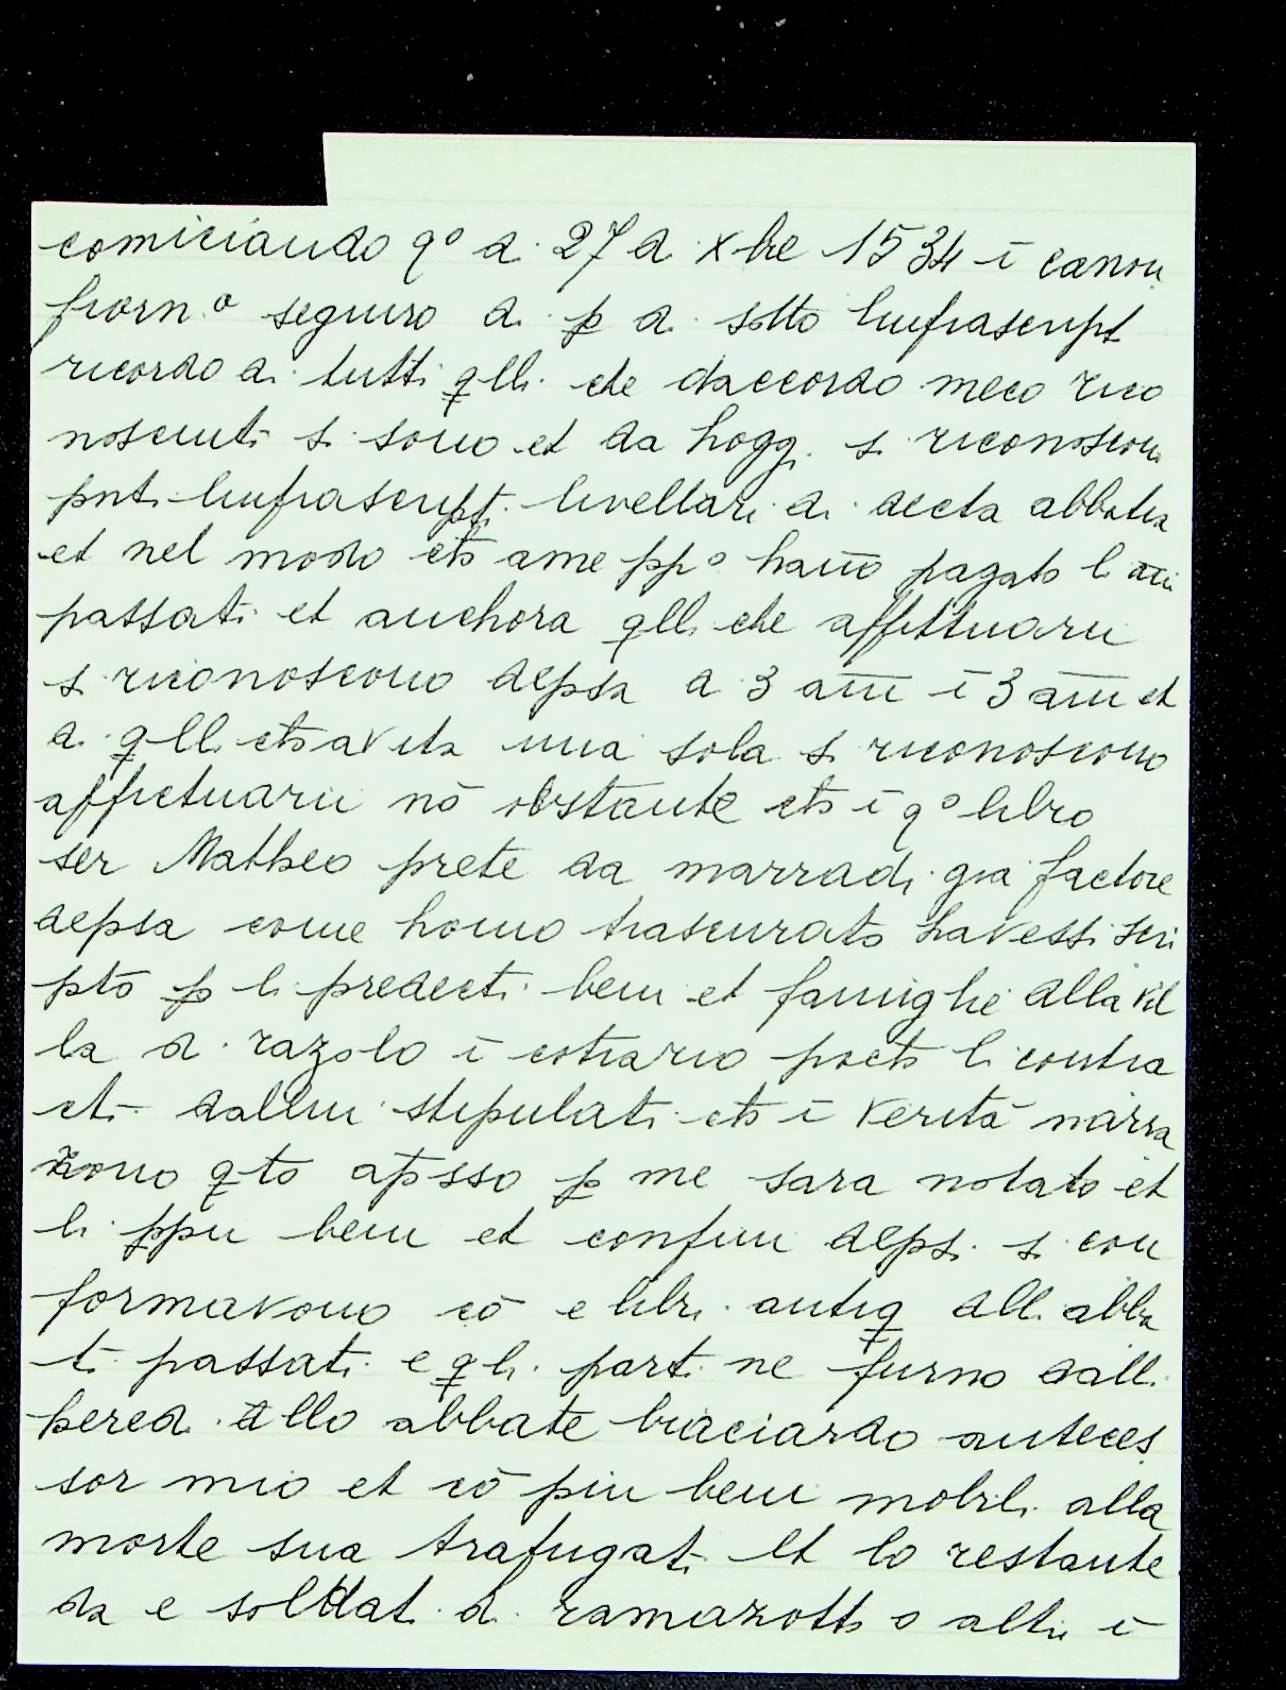 comiciando qº a. 27 d. xbre 1534 ī canon
fiorn.º seguiro d. ꝑ d. sotto linfrascript
ricordo di tutti qlli. che daccordo meco rico
nosciuti si sono et da hogg. s. riconoscon
pnti. linfrascript. livellari. di. decta abbatia
et nel modo chō ame ppº hāno pagato li āni
passati. et anchora qlli che affittuarii
s. riconoscono depsa a 3 āni ī 3 āni et
a. qlli. chō a vita una sola s. riconoscono
affictuarii nō obstante chō ī qº libro
ser Mattheo prete da marradi. gia factore
depsa come homo trascurato havessi. scri
pto ꝑ li. predecti. beni et famiglie alla vil
la d. razolo ī cōtrario pacto li contra
cti. dallui stipulati. chō ī verità narra
rono qto apsso ꝑ me sara notato et
li. ppii beni et confini depsi. s. con
formavono cō e libri. antiq dell. abba
ti. passati. e qli. parti. ne furno dall.
pered. dello abbate briaciardo anteces
sor mio et cō piu beni mobili. alla
morte sua trafugati. et lo restante
da e soldat. d. ramazotto o altri ī